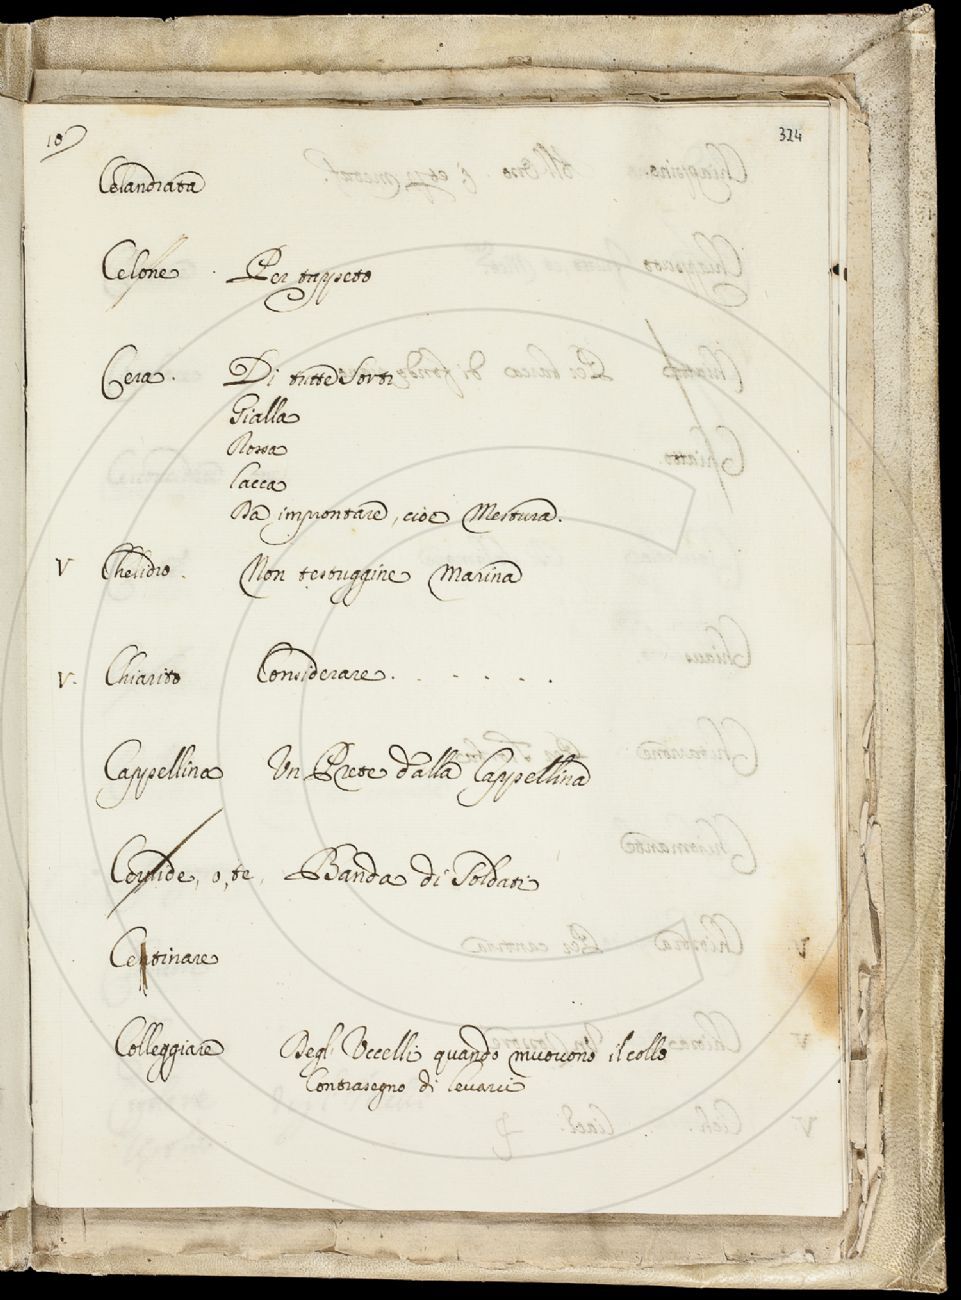 10
324
Celandrata
Celone . Per tappeto
Cera . Di tutte Sorti
Gialla
Rossa
Lacca
Da improntare, cioe Mestura.
V Chelidro . Non testuggine Marina
V. Chiarito Considerare . . . . . .
Cappellina Un Prete dalla Cappellina
o, te, Banda di Soldati
Centinare
Colleggiare Degl' Uccelli quando muovono il collo
Contrasegno di levarci